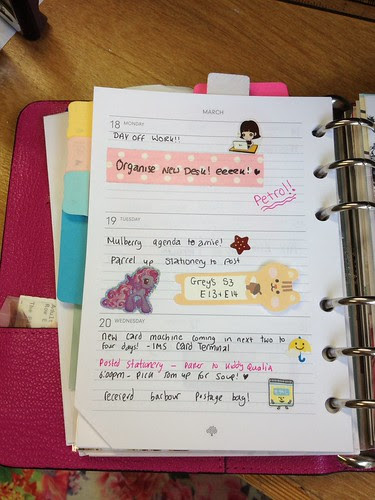 MARCH
18 MONDAY
DAY OFF WORK!!
Organise New Desk! eeeek! ♥
Petrol!!
19 TUESDAY
Mulberry agenda to amie!
Parcel up stationery to post
Grey's S3
E13+E14
20 WEDNESDAY
new card machine coming in next two to
four days! - IMS Card Terminal
Posted Stationery - Paper to
6:00pm - Pick Tom up for Soup! ♥
barbour postage bag!